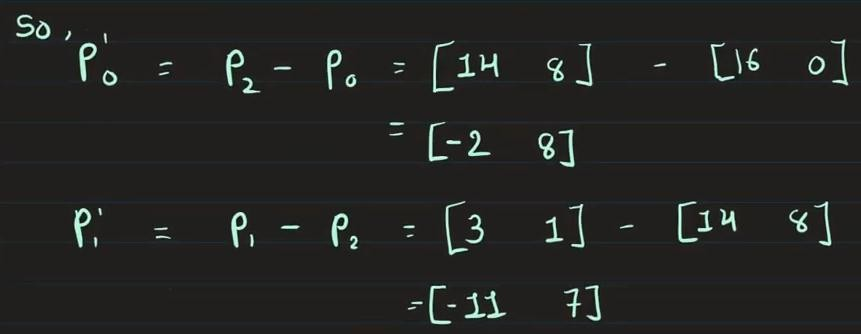 So,
P'₀ = P₂ - P₀ = [14 8] - [16 0]
= [-2 8]
P'₁ = P₁ - P₂ = [3 1] - [14 8]
= [-11 7]